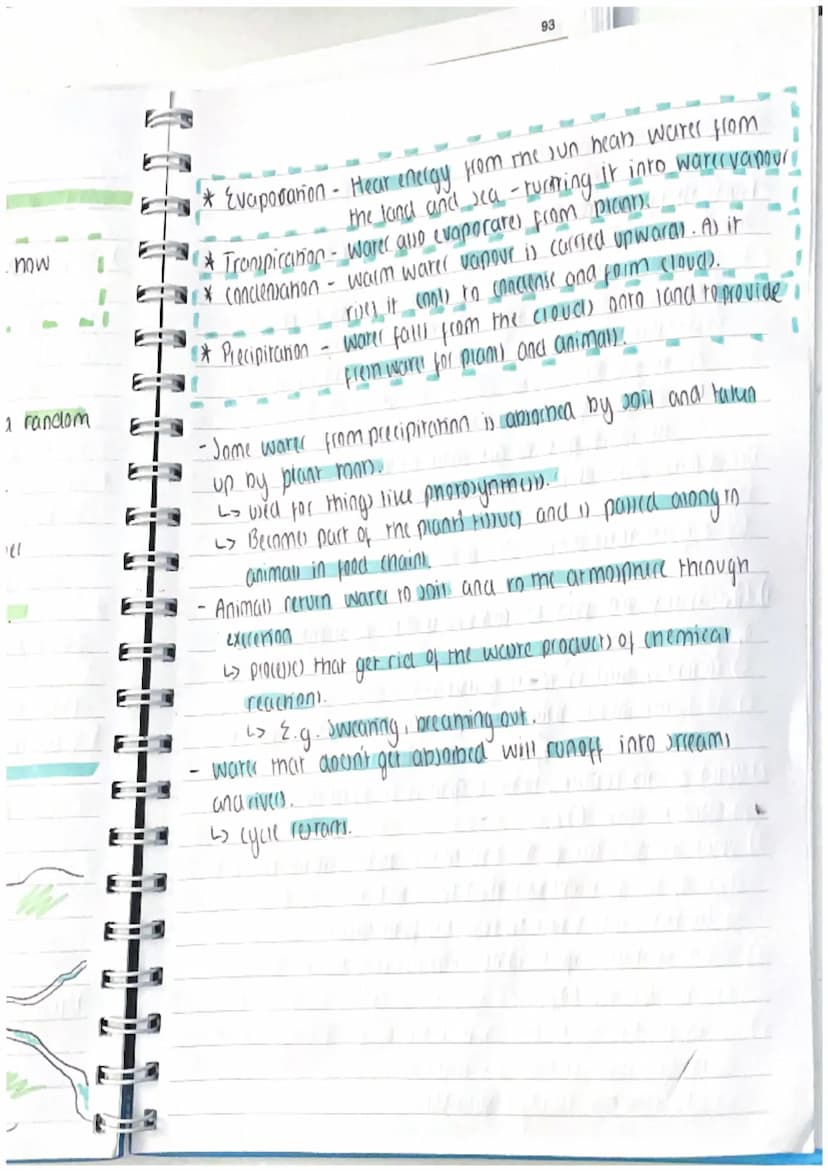 93
now
a random
* Evaporation - Heat energy from the sun heats water from
the land and sea - turning it into water vapour
* Transpiration - Water also evaporates from plants.
* Condensation - warm water vapour is carried upwards. As it
rises it cools to condense and form clouds.
* Precipitation - water falls from the clouds onto land to provide
fresh water for plants and animals.
- Some water from precipitation is absorbed by soil and taken
up by plant roots.
↳ used for things like photosynthesis.
↳ Becomes part of the plants tissues and is passed along to
animals in food chains.
- Animals return water to soil and to the atmosphere through
excretion
↳ processes that get rid of the waste products of chemical
reactions.
↳ E.g. sweating, breathing out.
- water that doesn't get absorbed will runoff into streams
and rivers.
↳ cycle restarts.